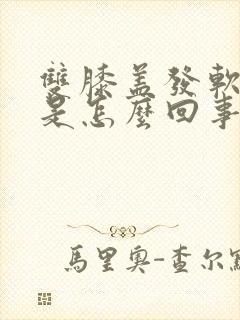 雙膝蓋發軟
是怎麼回事
馬里奧-查尔